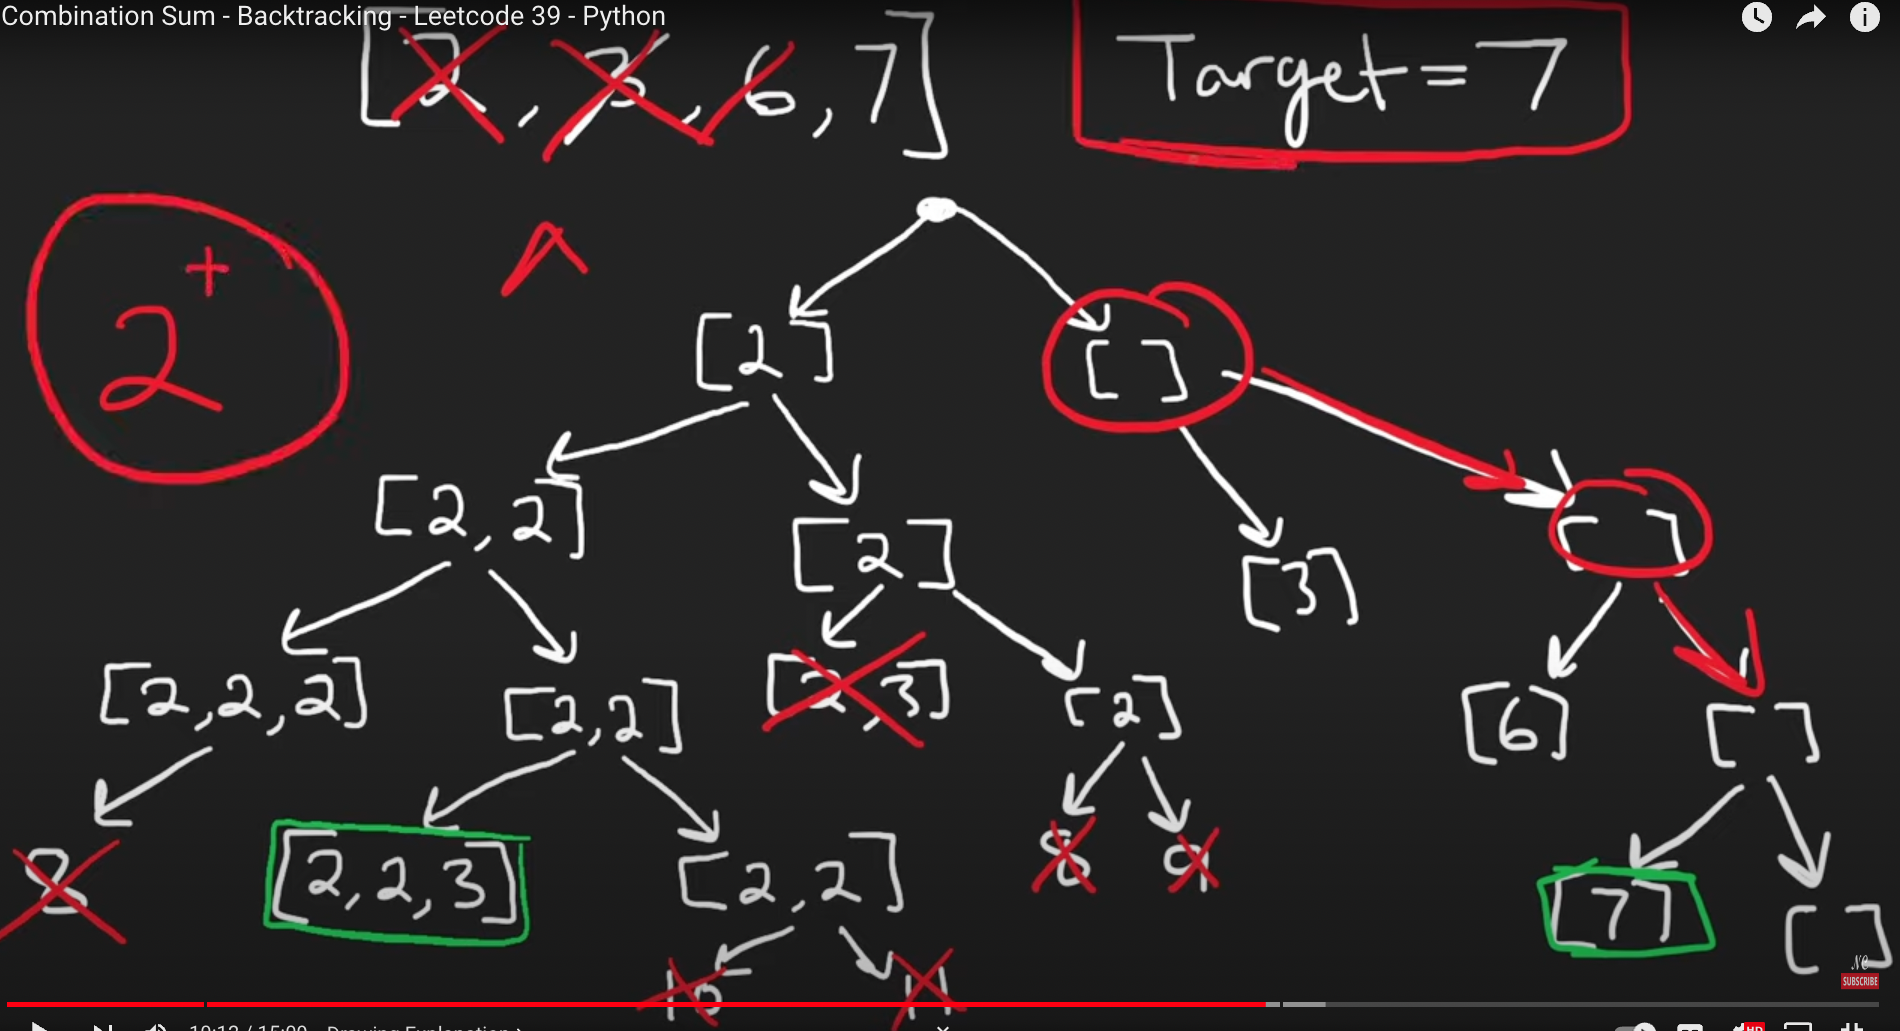 Combination Sum - Backtracking - Leetcode 39 - Python
[2, 3, 6, 7]
Target = 7
2+
[2] [ ]
[2,2] [2] [3] [ ]
[2,2,2] [2,2] [2,3] [2] [6] [ ]
8 [2,2,3] [2,2] 8 9 [7] [ ]
10 11
NC
SUBSCRIBE
10:12 / 15:09 · Drawing Explanation ›
HD